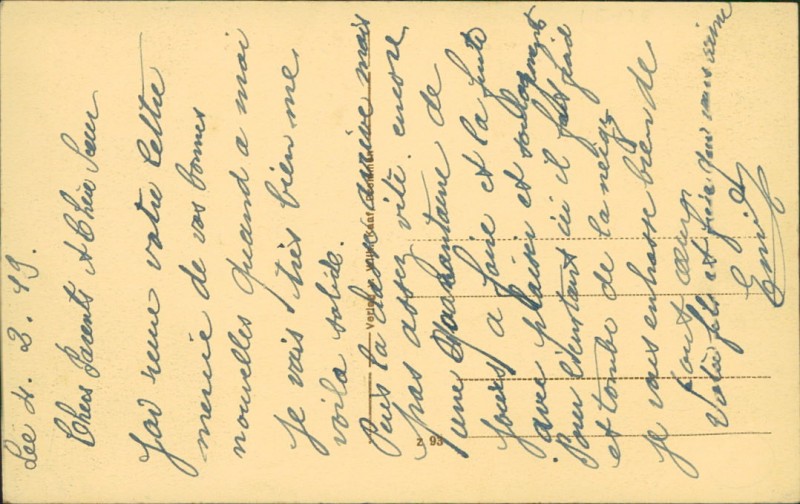 Lee 4. 2. 19.
Chers Parents et Chère Sœur
Jai reçue votre lettre
mercie de vos bonnes
nouvelles quand a moi
je vais très bien me
voila solide.
Puis la classe arrive mais
pas assez vite. encore
une quarantaine de
jours a faire et la fuite
avec plaisir et soulagement
Pour l'instant ici il fait froid
et tombe de la neige
je vous embrasse bien de
tout cœur
Votre fils et frère qui vous aime
Emile
Verlag v.
z 93